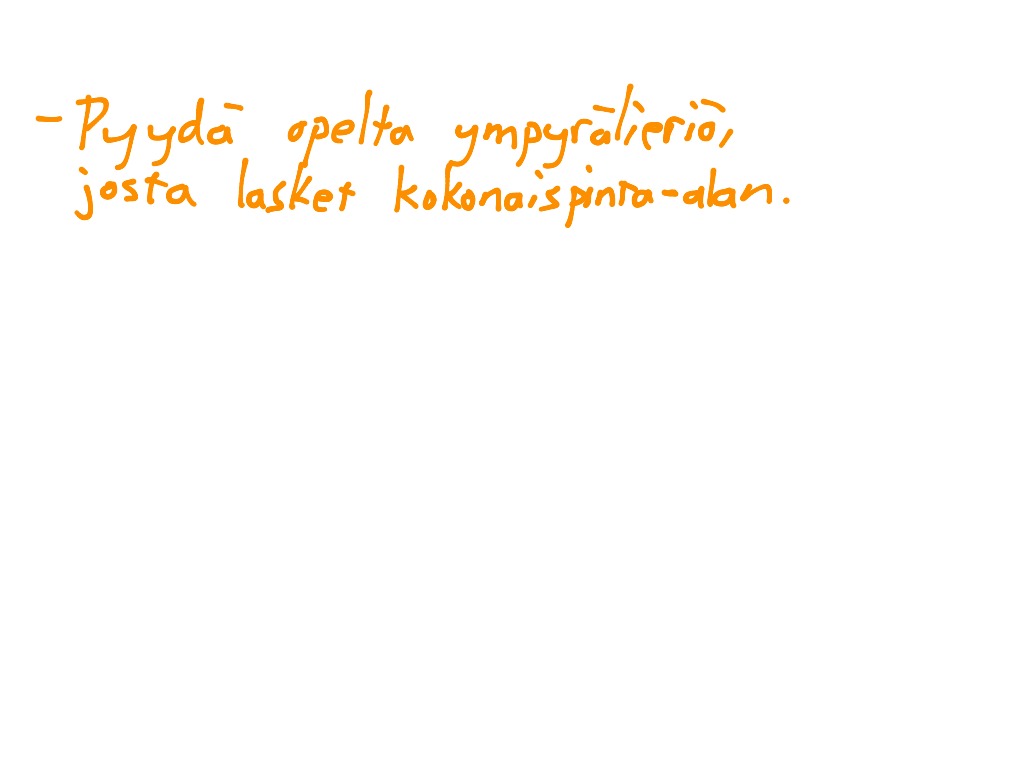 - Pyydä opelta ympyrälieriö,
josta lasket kokonaispinta-alan.